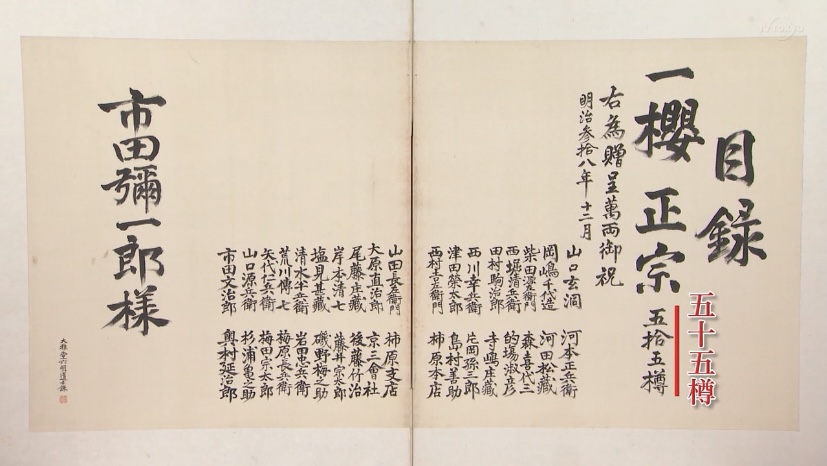 目録
一櫻正宗 五拾五樽
五十五樽
右為贈呈萬両御祝
明治参拾八年十二月
山口玄洞 河本正兵衛
岡嶋千代造 河田松藏
柴田源左衛門 森喜代三
西堀清兵衛 的場淑彦
田村駒治郎 寺嶋庄藏
西川幸兵衛 片岡孫三郎
津田榮太郎 島村善助
西村吉右衛門 柿原本店
山田長左衛門 柿原支店
大原直治郎 京三會社
尾藤庄藏 後藤竹治
岸本清七 藤井宗太郎
塩見甚藏 磯野梅之助
清水半兵衛 岩田忠兵衛
荒川傳七 梅原長兵衛
矢代仁兵衛 梅田宗太郎
山口源兵衛 杉浦亀之助
市田文治郎 奥村延治郎
市田彌一郎様